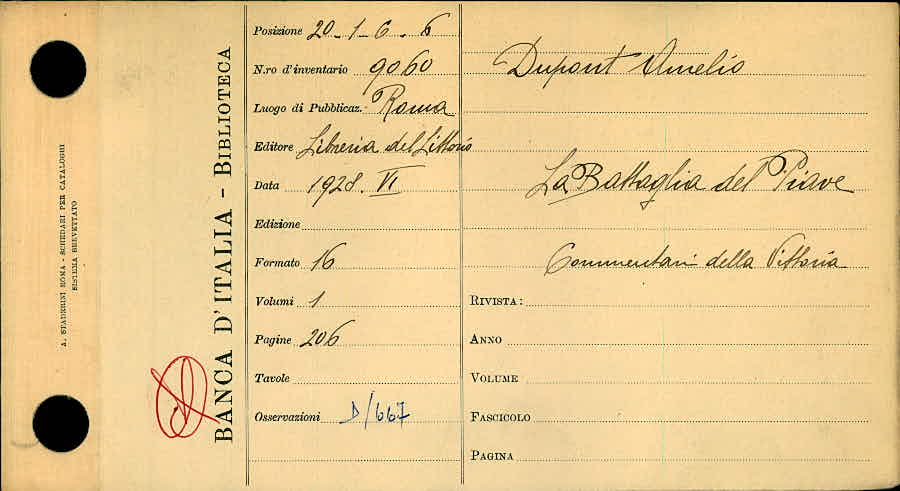 A. STADERINI ROMA - SCHEDARI PER CATALOGHI
SISTEMA BREVETTATO
BANCA D'ITALIA - BIBLIOTECA
Posizione 20-1-6.6
N.ro d'inventario 9060
Luogo di Pubblicaz. Roma
Editore Libreria del Littorio
Data 1928. VI
Edizione
Formato 16
Volumi 1
Pagine 206
Tavole
Osservazioni D/667
Dupont Amelio
La Battaglia del Piave
Commentari della Vittoria
RIVISTA:
ANNO
VOLUME
FASCICOLO
PAGINA